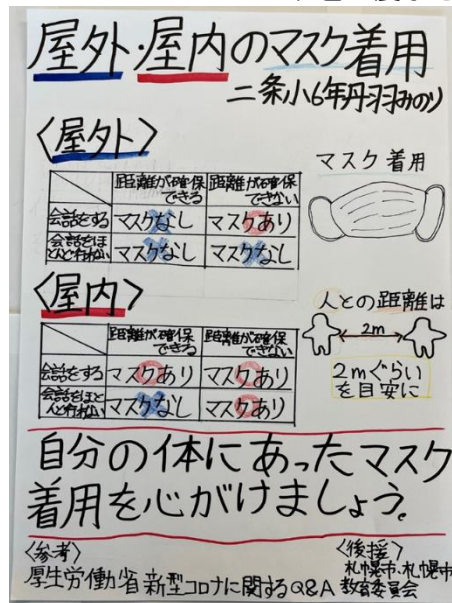 屋外・屋内のマスク着用
二条小6年丹羽みのり
〈屋外〉
マスク着用
距離が確保できる 距離が確保できない
会話をする マスクなし マスクあり
会話をほとんど行わない マスクなし マスクなし
〈屋内〉
人との距離は
2m
距離が確保できる 距離が確保できない
会話をする マスクあり マスクあり
会話をほとんど行わない マスクなし マスクあり
2mぐらい
を目安に
自分の体にあったマスク
着用を心がけましょう。
〈参考〉
厚生労働省新型コロナに関するQ&A
〈後援〉
札幌市・札幌市
教育委員会